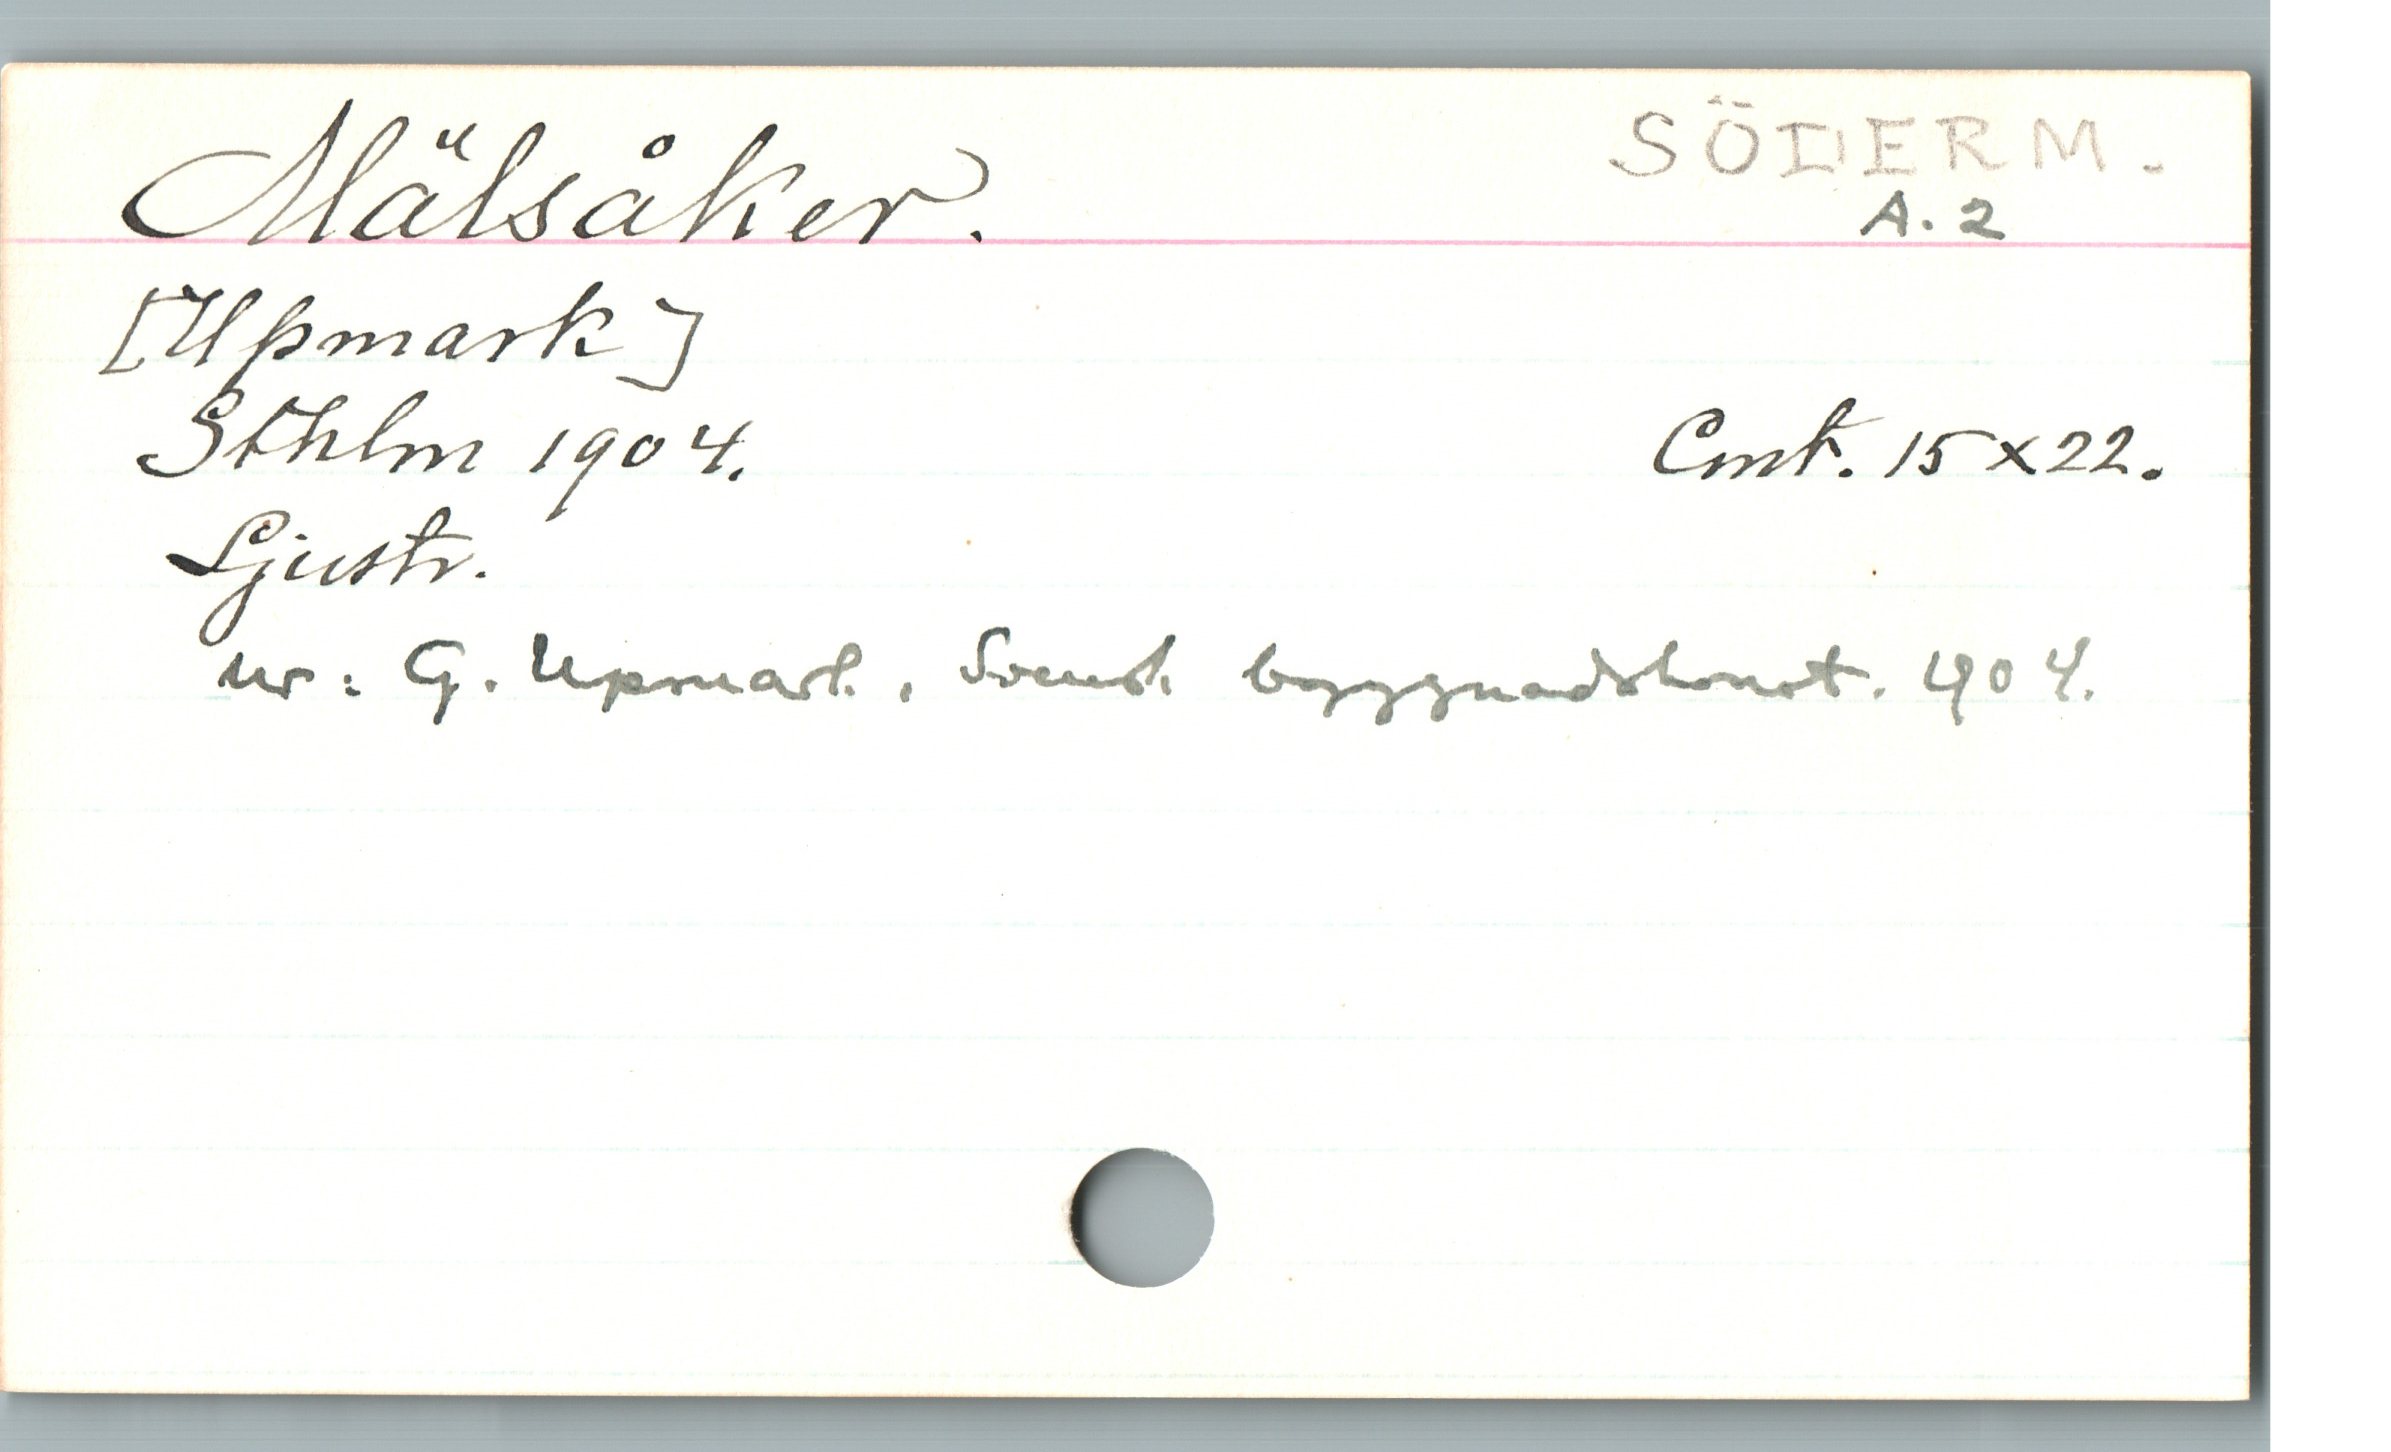 Mälsåker.
SÖDERM.
A. 2
[Upmark]
Sthlm 1904.
Cmt. 15 x 22.
Ljustr.
ur: G. Upmark, Svensk byggnadskonst. 1904.